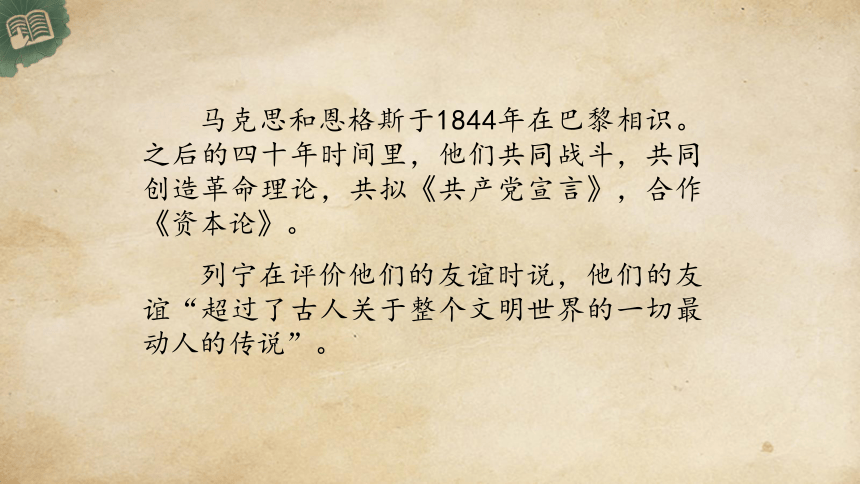 马克思和恩格斯于1844年在巴黎相识。
之后的四十年时间里，他们共同战斗，共同
创造革命理论，共拟《共产党宣言》，合作
《资本论》。
列宁在评价他们的友谊时说，他们的友
谊“超过了古人关于整个文明世界的一切最
动人的传说”。